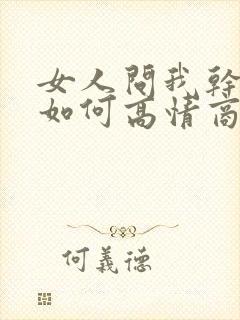 女人問我幹
如何高情商
何義德